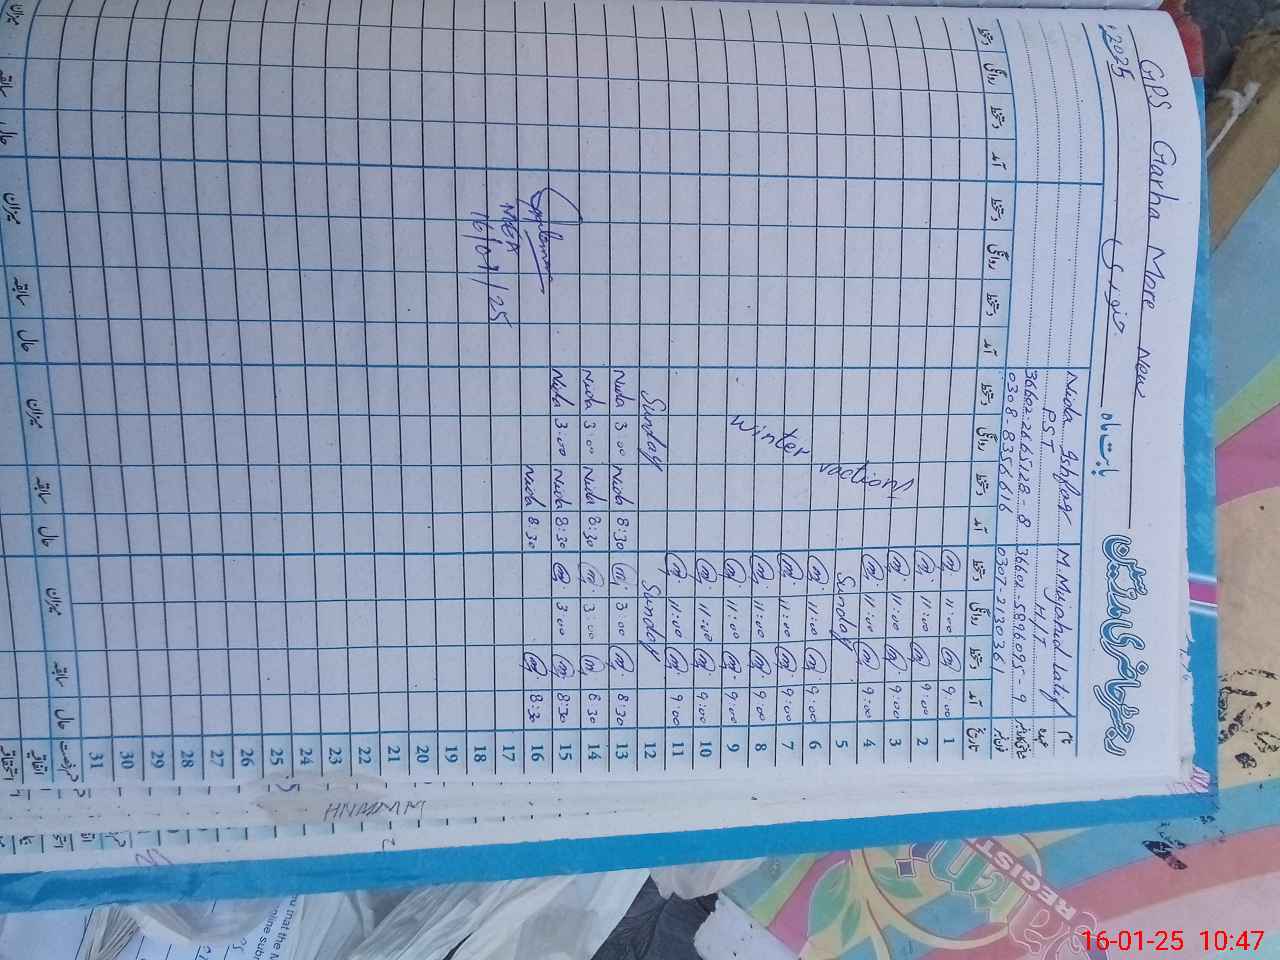 GPS Garha More New
رجسٹر حاضری مدرسین
بابت ماہ جنوری 2025
نام M. Mujahid Latif Nida Ishfaq
H/T PST
36601-5896095-9 36602-2665128-8
0307-2130361 0308-8356616
تاریخ آمد دستخط روانگی دستخط آمد دستخط روانگی دستخط آمد دستخط روانگی دستخط آمد دستخط روانگی دستخط
1 9:00 11:00
2 9:00 11:00
3 9:00 11:00
4 9:00 11:00
5 Sunday
6 9:00 11:00
7 9:00 11:00
8 9:00 11:00
9 9:00 11:00
10 9:00 11:00
11 9:00 11:00
winter vactions
12 Sunday Sunday
13 8:30 3:00 8:30 Nida 3:00 Nida
14 8:30 3:00 8:30 Nida 3:00 Nida
15 8:30 3:00 8:30 Nida 3:00 Nida
16 8:30 8:30 Nida
17
18
19
20
21
22
23
24
25
26
27
28
29
30
31
MEA
16/01/25
حال سابقہ میزان حال سابقہ میزان حال سابقہ میزان حال سابقہ میزان
REGIST
16-01-25 10:47